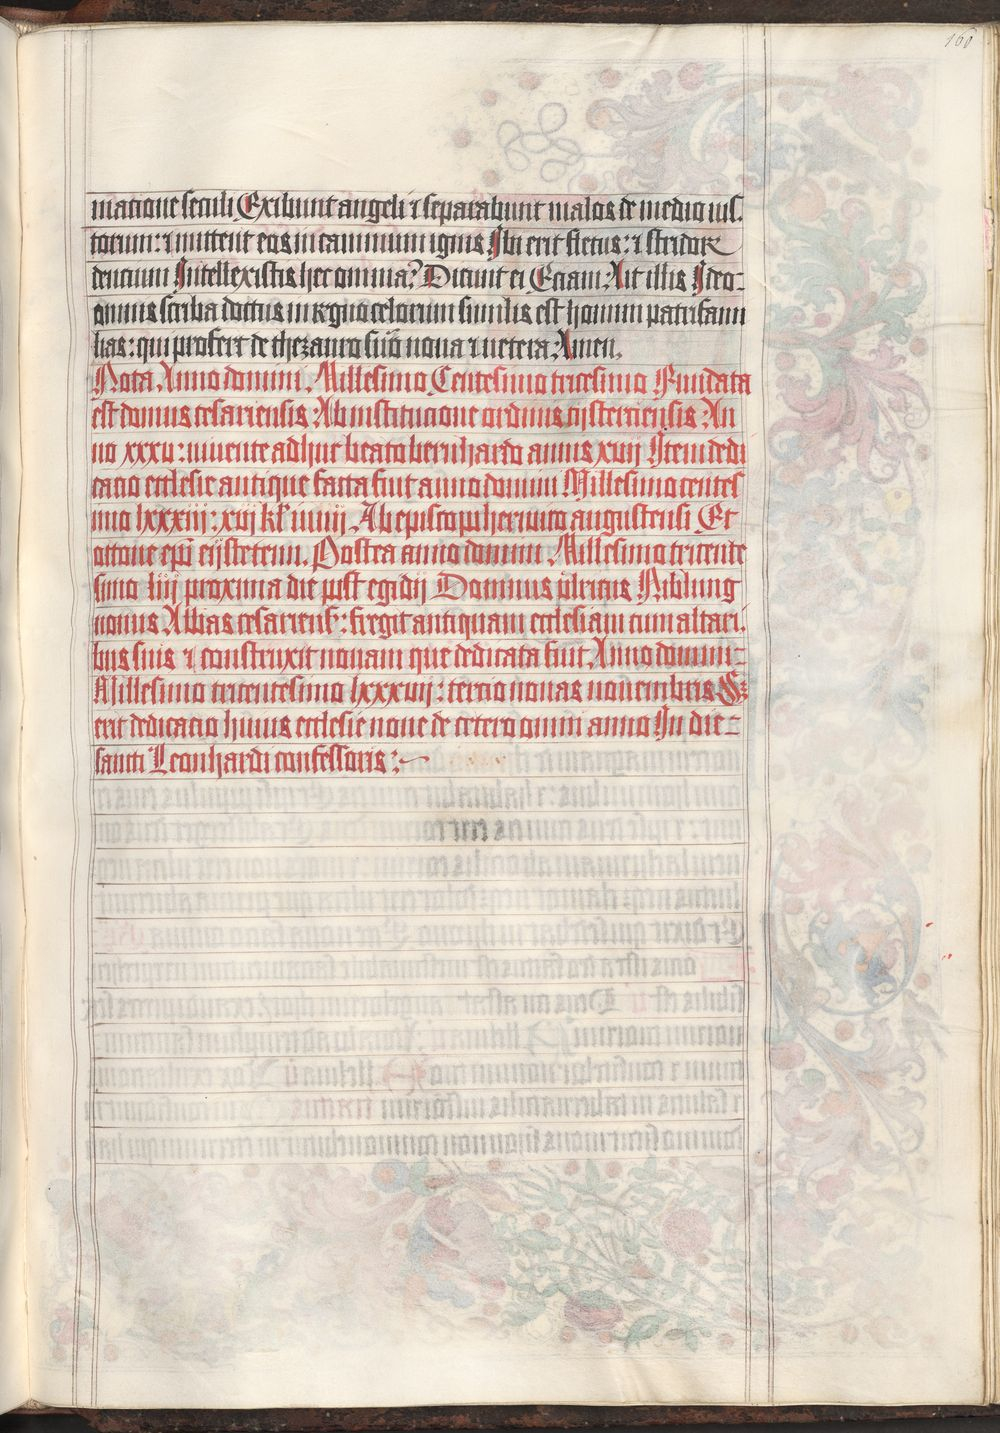 160
matione seculi Exibunt angeli ⁊ separabunt malos de medio ius-
torum: ⁊ mittent eos in caminum ignis Ibi erit fletus: ⁊ stridor
dencium Intellexistis hec omnia? Dicunt ei Eciam Ait illis Ideo-
omnis scriba doctus in regno celorum similis est homini patrifami
lias: qui profert de thezauro suo noua ⁊ uetera Amen.
Nota Anno domini Millesimo Centesimo tricesimo Fundata
est domus cesariensis Ab institucione ordinis cysterciensis An
no xxxv: viuente adhuc beato bernhardo annis xvij Item dedi
cacio ecclesie antique facta fuit anno domini Millesimo centes
imo lxxxiij: xvij kl Ab episcopo augustensi Et
ottone epi eystetenn. Postea anno domini Millesimo tricente
simo liij proxima die post egidij Dominus vlricus Niblung
nonus Abbas cesariens: fregit antiquam ecclesiam cum altari.
bus suis ⁊ construxit nouam que dedicata fuit Anno domini-
Millesimo tricentesimo lxxxvij: tercio nonas nouembris Et
erit dedicacio huius ecclesie noue de cetero omni anno In die-
sancti Leonhardi confessoris: